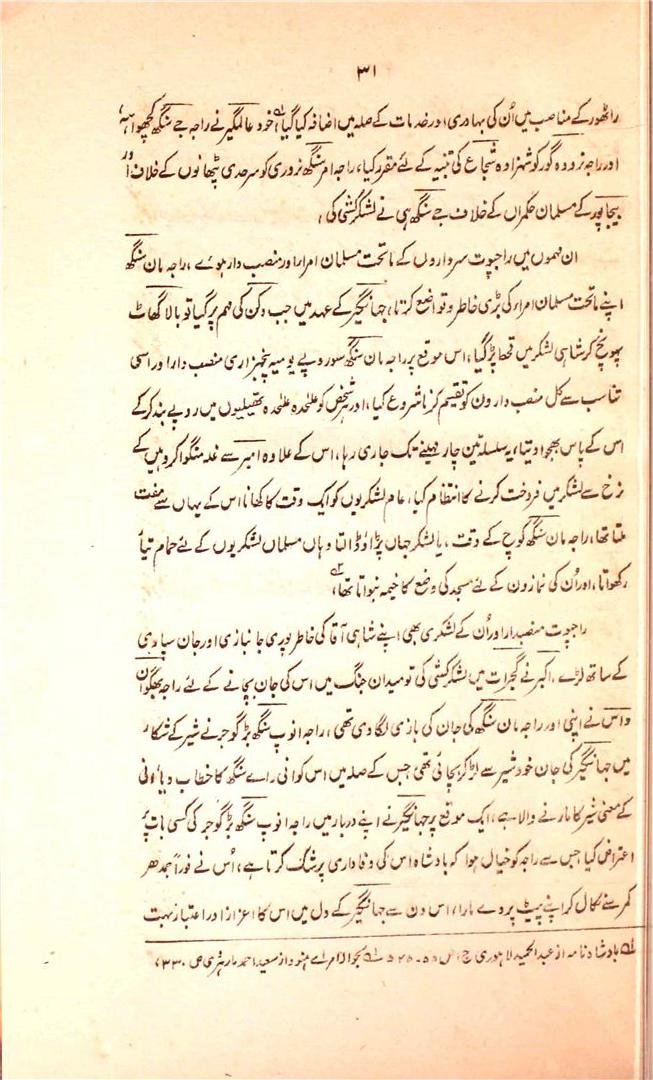 ۳۱
راٹھور کے مناصب میں اُن کی بہادری اور خدمات کے صلہ میں اضافہ کیا گیا، خود عالمگیر نے راجہ جے سنگھ کچھواہہ
اور راجہ نرودہ گور کو شہزادہ شجاع کی تنبیہ کے لئے مقرر کیا، راجہ امر سنگھ نروری کو سرحدی پٹھانوں کے خلاف اور
بیجاپور کے مسلمان حکمراں کے خلاف جے سنگھ ہی نے لشکر کشی کی،
ان مہموں میں راجپوت سرداروں کے ماتحت مسلمان امراء اور منصب دار ہوئے، راجہ مان سنگھ
اپنے ماتحت مسلمان امراء کی بڑی خاطر و تواضع کرتا، جہانگیر کے عہد میں جب دکن کی مہم پر گیا تو بالا گھاٹ
پہونچ کر شاہی لشکر میں قحط پڑ گیا، اس موقع پر راجہ مان سنگھ سو روپے یومیہ پنجہزاری منصب دار اور اسی
تناسب سے کل منصب دارون کو تقسیم کرنا شروع کیا، اور ہر شخص کو علٰحدہ علٰحدہ تھیلیوں میں روپے بند کر کے
اس کے پاس بھجوا دیتا، یہ سلسلہ تین چار مہینے تک جاری رہا، اس کے علاوہ امبر سے غلہ منگوا کر وہیں کے
نرخ سے لشکر میں فروخت کرنے کا انتظام کیا، عام لشکریوں کو ایک وقت کا کھانا اس کے یہاں سے مفت
ملتا تھا، راجہ مان سنگھ کوچ کے وقت، یا لشکر جہاں پڑاؤ ڈالتا وہاں مسلمان لشکریوں کے لئے حمام تیار
رکھواتا، اور اُن کی نمازون کے لئے مسجد کی وضع کا خیمہ نبواتا تھا،
راجپوت منصبدار اور اُن کے لشکری بھی اپنے شاہی آقا کی خاطر پوری جانبازی اور جان سپاری
کے ساتھ لڑے، اکبر نے گجرات میں لشکر کشی کی تو میدان جنگ میں اس کی جان بچانے کے لئے راجہ بھگوان
داس نے اپنی اور راجہ مان سنگھ کی جان کی بازی لگا دی تھی، راجہ انوپ سنگھ بڑگوجر نے شیر کے شکار
میں جہانگیر کی جان خود شیر سے لڑ کر بچائی تھی جس کے صلہ میں اس کو انی رائے سنگھ کا خطاب دیا، انی
کے معنی شیر کا مارنے والا ہے، ایک موقع پر جہانگیر نے اپنے دربار میں راجہ انوپ سنگھ بڑگوجر کی کسی بات پر
اعتراض کیا جس سے راجہ کو خیال ہوا کہ بادشاہ اس کی وفاداری پر شک کرتا ہے، اُس نے فوراً جمدھر
کمر سے نکال کر اپنے پیٹ پر دے مارا، اس دن سے جہانگیر کے دل میں اس کا اعزاز اور اعتبار بہت
بادشاہ نامہ از عبد الحمید لاہوری ج اص بحوالہ امرائے ہنود از سعید احمد مارہروی ص ۳۳۰،